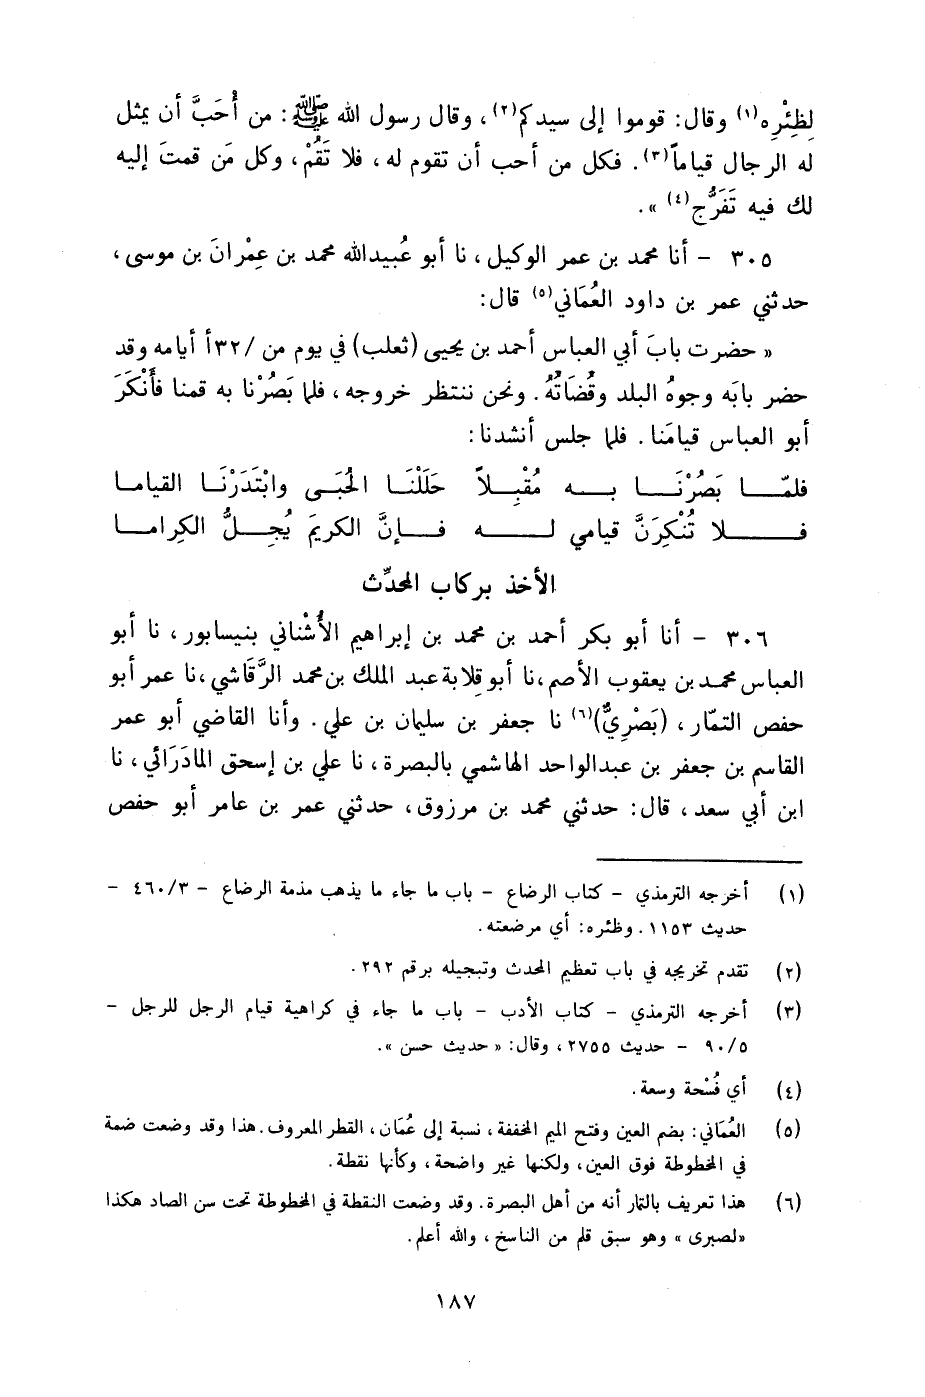 لِظِئْرِه(١) وقال: قوموا إلى سيدكم(٢)، وقال رسول الله ﷺ: من أُحَبَّ أن يمثل
له الرجال قياماً(٣). فكل من أحب أن تقوم له، فلا تَقُمْ، وكل مَن قمتَ إليه
لك فيه تَفَرُّج(٤)».
٣٠٥ - أنا محمد بن عمر الوكيل، نا أبو عُبيدالله محمد بن عِمْرانَ بن موسى،
حدثني عمر بن داود العُمَاني(٥) قال:
« حضرت بابَ أبي العباس أحمد بن يحيى (ثعلب) في يوم من /٣٢أ أيامه وقد
حضر بابَه وجوهُ البلد وقُضَاتُهُ. ونحن ننتظر خروجه، فلما بَصُرْنا به قمنا فأَنْكَرَ
أبو العباس قيامَنا. فلما جلس أنشدنا:
فلمّـا بَصُرْنَـا بـه مُقْبِـلاً حَلَلْنَـا الحُبَـى وابْتَدَرْنَـا القيامـا
فـلا تُنْكِرَنَّ قيامي لـه فـإنَّ الكريمَ يُجِـلُّ الكِرامـا
الأخذ بركاب المحدِّث
٣٠٦ - أنا أبو بكر أحمد بن محمد بن إبراهيم الأُشْناني بنيسابور، نا أبو
العباس محمد بن يعقوب الأصم، نا أبو قلابة عبد الملك بن محمد الرَّقَاشي، نا عمر أبو
حفص التمّار، (بَصْرِيٌّ)(٦) نا جعفر بن سليمان بن علي. وأنا القاضي أبو عمر
القاسم بن جعفر بن عبدالواحد الهاشمي بالبصرة، نا علي بن إسحق المادَرَائي، نا
ابن أبي سعد، قال: حدثني محمد بن مرزوق، حدثني عمر بن عامر أبو حفص
(١) أخرجه الترمذي - كتاب الرضاع - باب ما جاء ما يذهب مذمة الرضاع - ٤٦٠/٣ -
حديث ١١٥٣. وظئره: أي مرضعته.
(٢) تقدم تخريجه في باب تعظيم المحدث وتبجيله برقم ٢٩٢.
(٣) أخرجه الترمذي - كتاب الأدب - باب ما جاء في كراهية قيام الرجل للرجل -
٩٠/٥ - حديث ٢٧٥٥، وقال: «حديث حسن».
(٤) أي فُسْحة وسعة.
(٥) العُمَاني: بضم العين وفتح الميم المخففة، نسبة إلى عُمَان، القطر المعروف. هذا وقد وضعت ضمة
في المخطوطة فوق العين، ولكنها غير واضحة، وكأنها نقطة.
(٦) هذا تعريف بالتمار أنه من أهل البصرة. وقد وضعت النقطة في المخطوطة تحت سن الصاد هكذا
«لصبرى» وهو سبق قلم من الناسخ، والله أعلم.
١٨٧